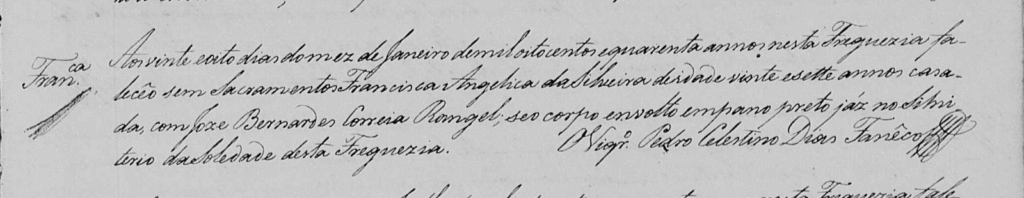 Fran.ca
Aos vinte e oito dias do mez de Janeiro de mil oito centos e quarenta annos nesta Freguezia fa-
lecêo sem Sacramentos Francisca Angelica da Silveira de idade vinte e sette annos casa-
da, com Joze Bernardes Correia Rangel; seo corpo envolto em pano preto jáz no Simi-
terio da Soledade desta Freguezia. O Vigr.o Pedro Celestino Dias Fanêco
nesta Freguezia fale-